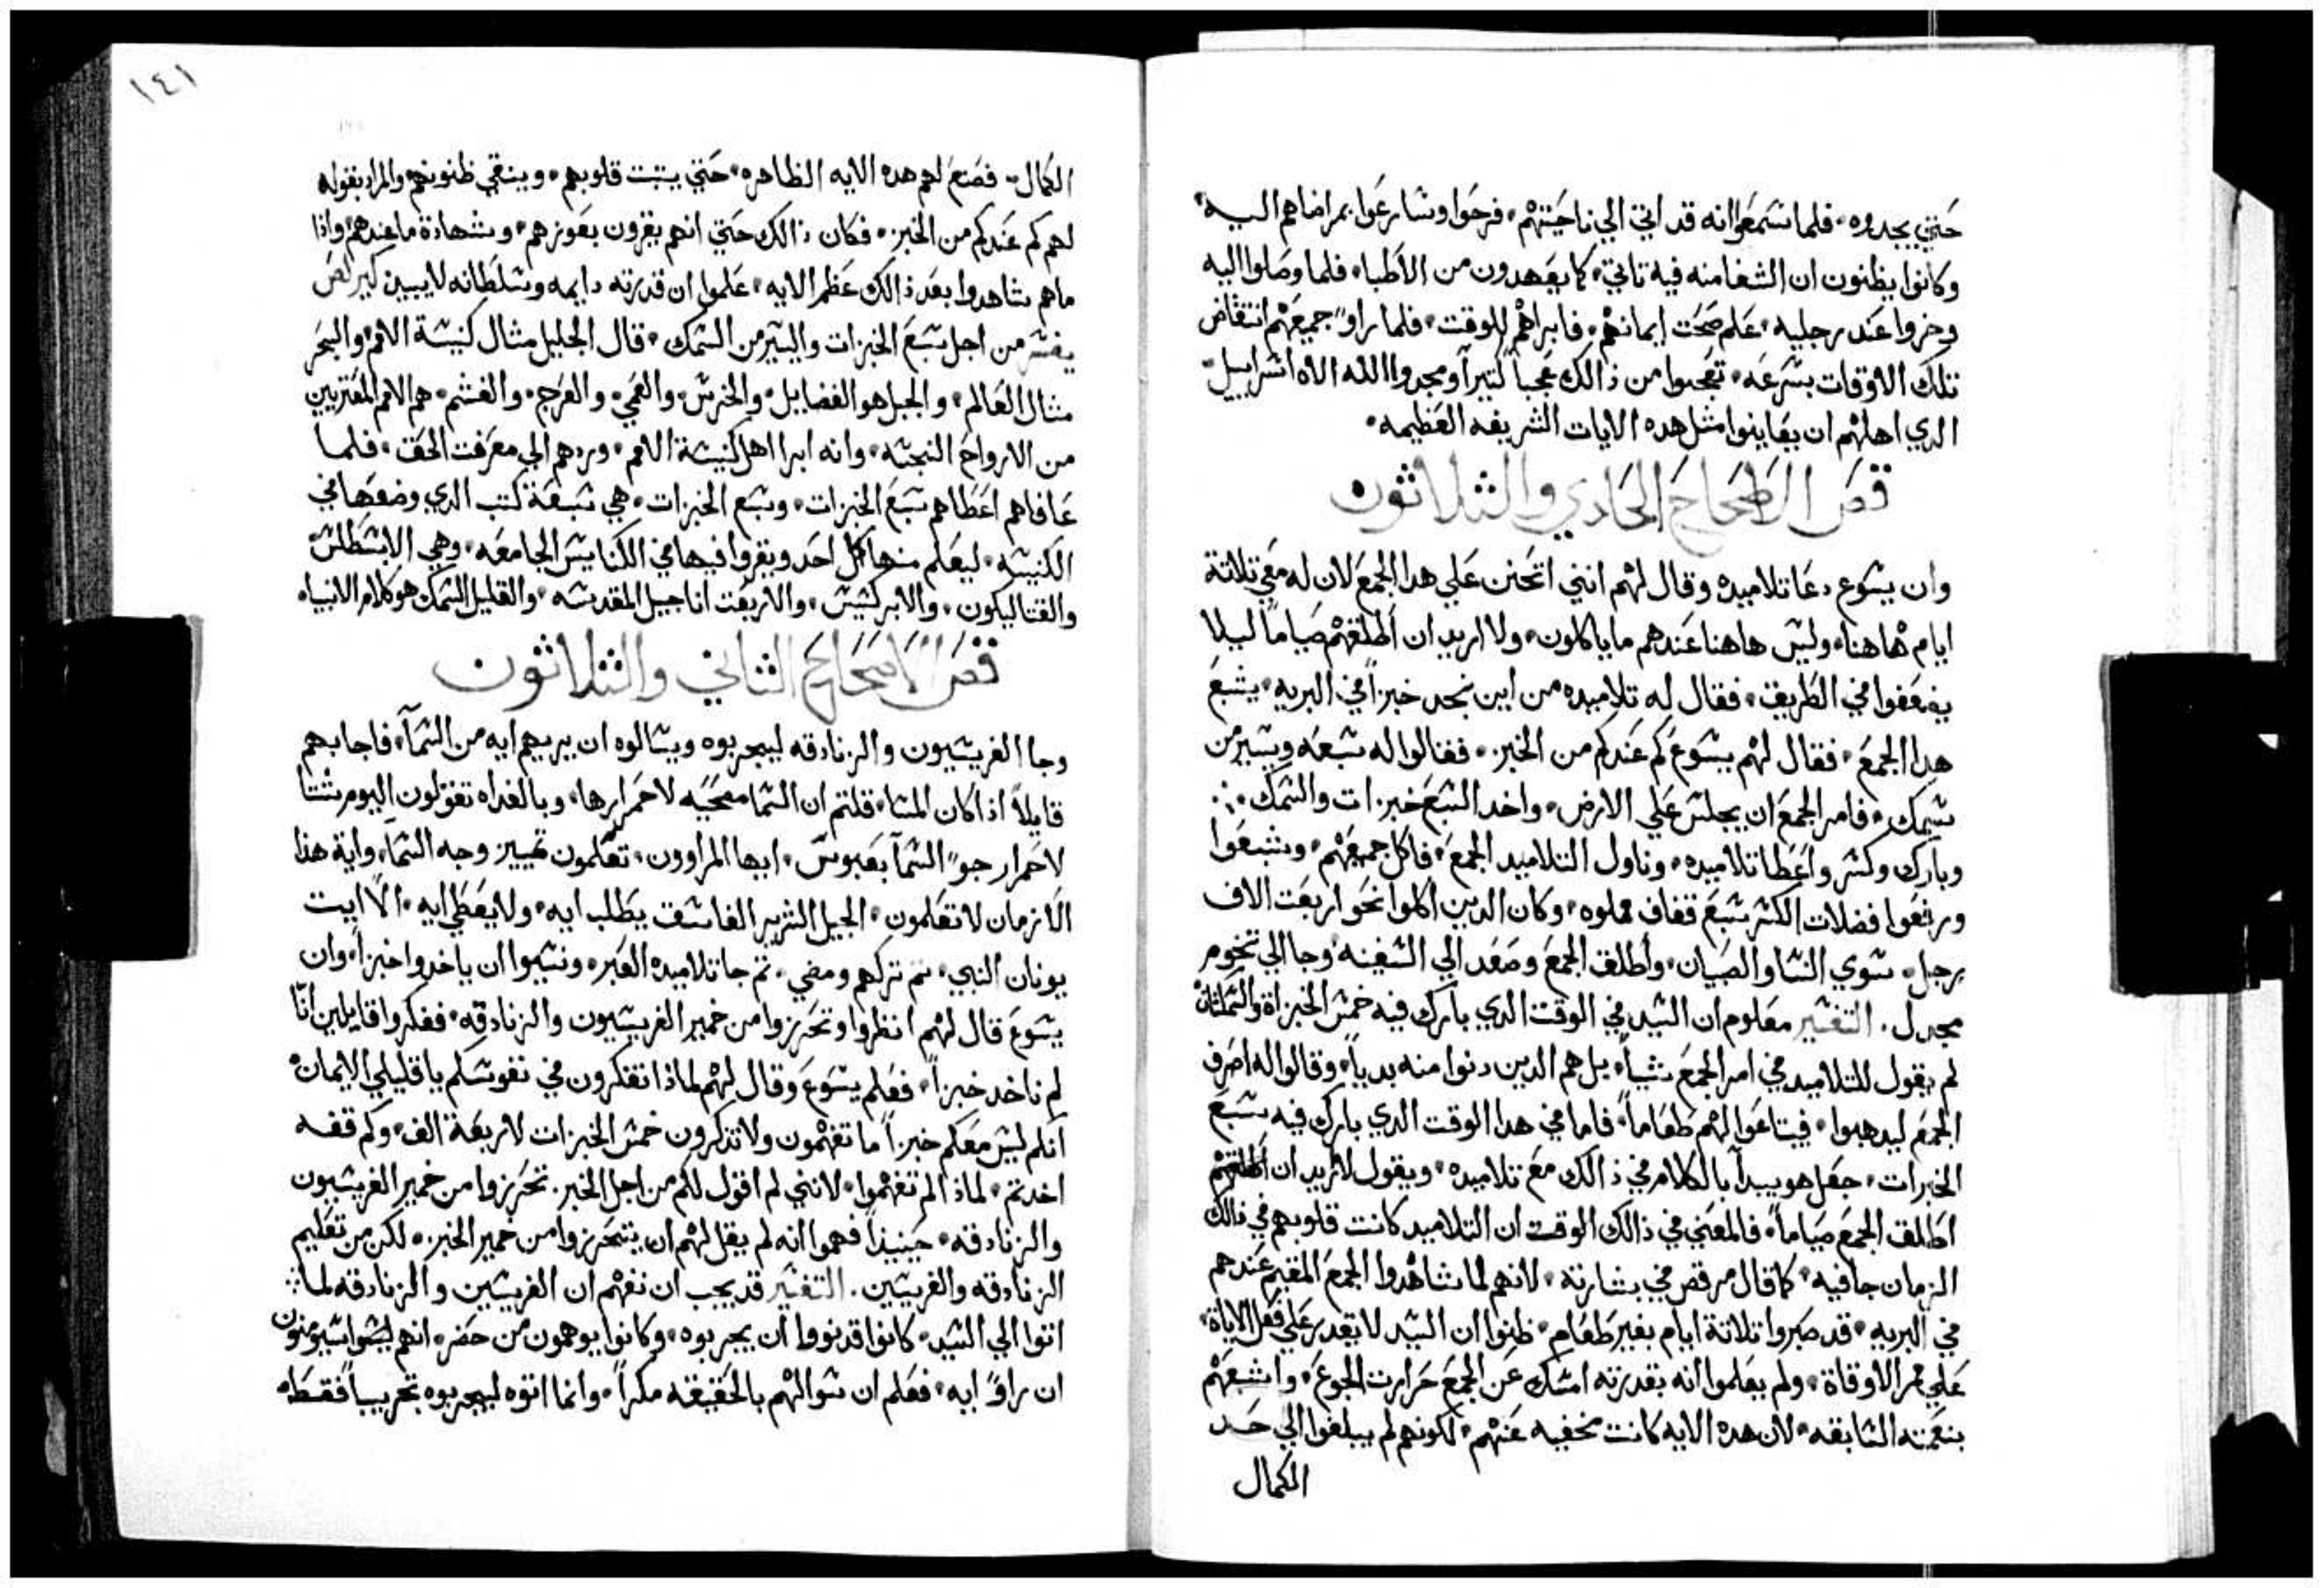 حتي يجدوه، فلما سمعوا انه قد اتي الي ناحيتهم، فرحوا وسارعوا بمراضاهم اليه،
وكانوا يظنون ان الشفا منه فيه تاني، كما يعهدون من الاطبا، فلما وصلوا اليه
وخروا عند رجليه، علم صحت ايمانهم، فابراهم للوقت، فلما راوا جميعهم انتقاض
تلك الاوقات بسرعه، تعجبوا من ذالك عجباً كتيراً ومجدوا الله الاه اسراييل،
الدي اهلهم ان يعاينوا متل هده الايات الشريفه العظيمه،
فص الاصحاح الحادي والتلاتون
وان يسوع دعا تلاميده وقال لهم انني اتحنن علي هدا الجمع لان له معي تلاتة
ايام هاهنا، وليس هاهنا عندهم ما ياكلون، ولا اريد ان أطلقهم صياماً ليلا
يضعفوا في الطريق، فقال له تلاميده من اين نجد خبزاً في البريه، يشبع
هدا الجمع، فقال لهم يسوع كم عندكم من الخبز، فقالوا له سبعه ويسير من
سمك، فامر الجمع ان يجلس علي الارض، واخد السبع خبزات والسمك
وبارك وكسر واعطا تلاميده، وناول التلاميد الجمع، فاكل جميعهم، وشبعوا
ورفعوا فضلات الكسر سبع قفاف مملوه، وكان الدين اكلوا نحو اربعت الاف
رجل، سوي النسا والصبيان، وأطلق الجمع وصعد الي السفينه وجا الي تخوم
مجدل. التفسير معلوم ان السيد في الوقت الدي بارك فيه خمس الخبزاة والسمكتان
لم يقول للتلاميد في امر الجمع شياً، بل هم الدين دنوا منه بدياً، وقالوا له اصرف
الجمع ليدهبوا، فيبتاعوا لهم طعاماً، فاما في هدا الوقت الدي بارك فيه سبع
الخبزات، جعل هو يبدأ بالكلام في ذالك مع تلاميده، ويقول لا اريد ان اطلقهم
اطلق الجمع صياماً، فالمعني في ذالك الوقت ان التلاميد كانت قلوبهم في ذالك
الزمان جافيه، كما قال مرقص في بشارته، لانهم لما شاهدوا الجمع المقيم عندهم
في البريه، قد صبروا تلاتة ايام بغير طعام، ظنوا ان السيد لا يقدر علي فعل الاياة،
علي ممر الاوقاة، ولم يعلموا انه بقدرته امسك عن الجمع حرارت الجوع، واشبعهم
بنعمته السابقه، لان هده الايه كانت مخفيه عنهم، لكونهم لم يبلغوا الي حد
الكمال
١٤١
الكمال، فصنع لهم هده الايه الظاهره، حتي يتبت قلوبهم، وينقي ظنونهم، والمراد بقوله
لهم كم عندكم من الخبز، فكان ذالك حتي انهم يقرون بعوزهم، وشهادة ما عندهم، واذا
ما هم شاهدوا بعد ذالك عظم الايه، علموا ان قدرته دايمه وسلطانه لا يبين
يفسر من اجل سبع الخبزات واليسير من السمك، قال الجليل متال كنيسة الامم، والبحر
متال العالم، والجبل هو الفضايل، والخرس، والعمي، والعرج، والعسم، هم الامم المعتريين
من الارواح النجسه، وانه ابرا اهل كنيسة الامم، وردهم الي معرفت الحق، فلما
عافاهم اعطاهم سبع الخبزات، وسبع الخبزات، هي سبعة كتب الدي وضعها في
الكنيسه، ليعلم منها كل احد ويقروا فيها في الكنايس الجامعه، وهي الابسطلس
والقتاليكون، والابركسيس، والاربعت اناجيل المقدسه، والقليل السمك هو كلام الانبياء
فص الاصحاح التاني والتلاتون
وجا الفريسيون والزنادقه ليجربوه ويسالوه ان يريهم ايه من السمآ، فاجابهم
قايلاً اذا كان المسا، قلتم ان السما مصحيه لاحمرارها، وبالغداه تقولون اليوم شتا
لاحمرار جو السمآ بعبوس، ايها المراوون، تعلمون تمييز وجه السمآ، واية هذا
الازمان لا تعلمون، الجيل الشرير الفاسق يطلب ايه، ولا يعطي ايه، الا ايت
يونان النبي، تم تركهم ومضي، تم جا تلاميده العبر، ونسيوا ان ياخدوا خبزاً، وان
يسوع قال لهم انظروا وتحرزوا من خمير الفريسيون والزنادقه، ففكروا قايلين انّا
لم ناخد خبزاً، فعلم يسوع وقال لهم لماذا تفكرون في نفوسكم يا قليلي الايمان،
انكم ليس معكم خبزاً ما تفهمون ولا تذكرون خمس الخبزات لاربعة الف، وكم قفه
اخدتم، لماذا لم تفهموا، لانني لم اقول لكم من اجل الخبز، تحرزوا من خمير الفريسيون
والزنادقه، حينيذاً فهموا انه لم يقل لهم ان يتحرزوا من خمير الخبز، لكن من تعليم
الزنادقه والفريسيين. التفسير قد يجب ان نفهم ان الفريسين والزنادقه لما
اتوا الي السيد، كانوا قد نووا ان يجربوه، وكانوا يوهمون من حضر، انهم ليسوا سيومنون
ان راوا ايه، فعلم ان سوالهم بالحقيقه مكراً، وانما اتوه ليجربوه تجريباً فقط،